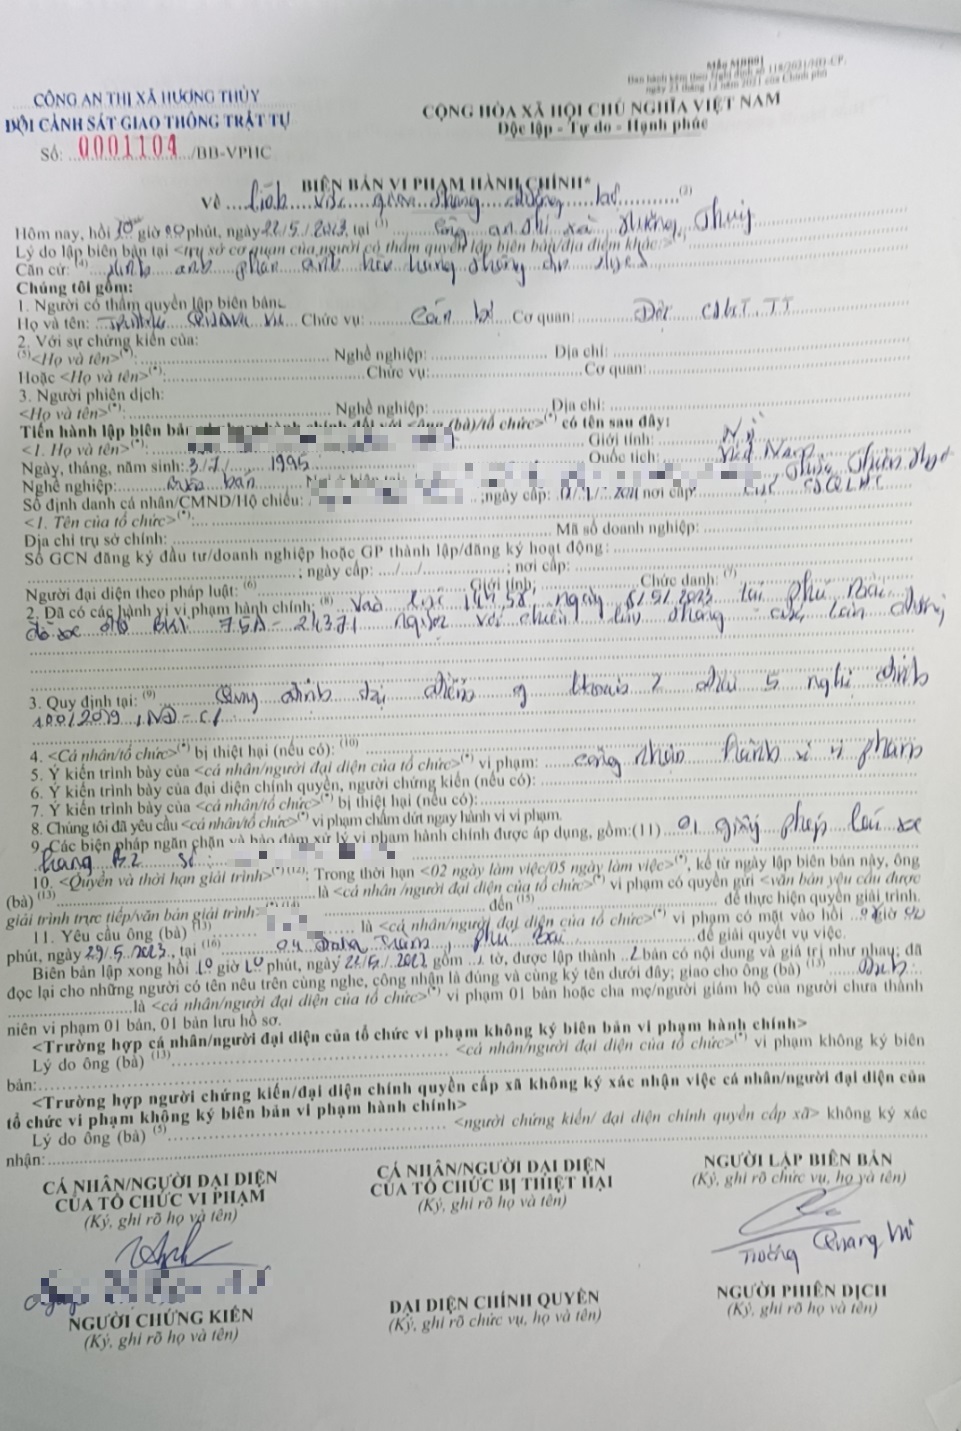 Mẫu MBB01
Ban hành kèm theo Nghị định số 118/2021/NĐ-CP
ngày 23 tháng 12 năm 2021 của Chính phủ
CÔNG AN THỊ XÃ HƯƠNG THỦY
ĐỘI CẢNH SÁT GIAO THÔNG TRẬT TỰ
Số: 0001104 /BB-VPHC
CỘNG HÒA XÃ HỘI CHỦ NGHĨA VIỆT NAM
Độc lập - Tự do - Hạnh phúc
BIÊN BẢN VI PHẠM HÀNH CHÍNH*
Về lĩnh vực giao thông đường bộ (2)
Hôm nay, hồi 10 giờ 00 phút, ngày 22/5/2023, tại (3) Công an thị xã Hương Thủy
Lý do lập biên bản tại <trụ sở cơ quan của người có thẩm quyền lập biên bản/địa điểm khác>(*):
Căn cứ: (4) hình ảnh phản ánh
Chúng tôi gồm:
1. Người có thẩm quyền lập biên bản:
Họ và tên: Trương Quang Vũ Chức vụ: Cán bộ Cơ quan: Đội CSGT.TT
2. Với sự chứng kiến của:
(5)<Họ và tên>(*): Nghề nghiệp: Địa chỉ:
Hoặc <Họ và tên>(*): Chức vụ: Cơ quan:
3. Người phiên dịch:
<Họ và tên>(*): Nghề nghiệp: Địa chỉ:
Tiến hành lập biên bản (bà)/tổ chức>(*) có tên sau đây:
<1. Họ và tên>(*): Giới tính: Nữ
Ngày, tháng, năm sinh: 3/7/1995 Quốc tịch: Việt Nam
Nghề nghiệp: buôn bán Thừa Thiên Huế
Số định danh cá nhân/CMND/Hộ chiếu: ;ngày cấp: nơi cấp: Cục CSQLHC
<1. Tên của tổ chức>(*):
Địa chỉ trụ sở chính: Mã số doanh nghiệp:
Số GCN đăng ký đầu tư/doanh nghiệp hoặc GP thành lập/đăng ký hoạt động:
; ngày cấp: ..../..../ ; nơi cấp:
Người đại diện theo pháp luật: (6) Giới tính: Chức danh: (7)
2. Đã có các hành vi vi phạm hành chính: (8) Vào lúc 14h58, ngày tại Phú Bài
đỗ xe ô tô BKS 75A-24371 ngược với chiều lưu thông của làn đường
3. Quy định tại: (9) Quy định tại điểm g khoản 2 điều 5 nghị định
100/2019/NĐ-CP
4. <Cá nhân/tổ chức>(*) bị thiệt hại (nếu có): (10)
5. Ý kiến trình bày của <cá nhân/người đại diện của tổ chức>(*) vi phạm: công nhận hành vi vi phạm
6. Ý kiến trình bày của đại diện chính quyền, người chứng kiến (nếu có):
7. Ý kiến trình bày của <cá nhân/tổ chức>(*) bị thiệt hại (nếu có):
8. Chúng tôi đã yêu cầu <cá nhân/tổ chức>(*) vi phạm chấm dứt ngay hành vi vi phạm.
9. Các biện pháp ngăn chặn và bảo đảm xử lý vi phạm hành chính được áp dụng, gồm:(11) 01 giấy phép lái xe
hạng B2 số:
10. <Quyền và thời hạn giải trình>(*)(12): Trong thời hạn <02 ngày làm việc/05 ngày làm việc>(*), kể từ ngày lập biên bản này, ông
(bà) (13) là <cá nhân /người đại diện của tổ chức>(*) vi phạm có quyền gửi <văn bản yêu cầu được
giải trình trực tiếp/văn bản giải trình>(*)(14) đến (15) để thực hiện quyền giải trình.
11. Yêu cầu ông (bà) (13) là <cá nhân/người đại diện của tổ chức>(*) vi phạm có mặt vào hồi giờ
phút, ngày 29/5/2023, tại (16) Phú Bài để giải quyết vụ việc.
Biên bản lập xong hồi 10 giờ 10 phút, ngày 22/5/2023 gồm tờ, được lập thành 2 bản có nội dung và giá trị như nhau; đã
đọc lại cho những người có tên nêu trên cùng nghe, công nhận là đúng và cùng ký tên dưới đây; giao cho ông (bà) (13)
là <cá nhân/người đại diện của tổ chức>(*) vi phạm 01 bản hoặc cha mẹ/người giám hộ của người chưa thành
niên vi phạm 01 bản, 01 bản lưu hồ sơ.
<Trường hợp cá nhân/người đại diện của tổ chức vi phạm không ký biên bản vi phạm hành chính>
Lý do ông (bà) (13) <cá nhân/người đại diện của tổ chức>(*) vi phạm không ký biên
bản:
<Trường hợp người chứng kiến/đại diện chính quyền cấp xã không ký xác nhận việc cá nhân/người đại diện của
tổ chức vi phạm không ký biên bản vi phạm hành chính>
Lý do ông (bà) (5) <người chứng kiến/ đại diện chính quyền cấp xã> không ký xác
nhận:
CÁ NHÂN/NGƯỜI ĐẠI DIỆN
CỦA TỔ CHỨC VI PHẠM
(Ký, ghi rõ họ và tên)
CÁ NHÂN/NGƯỜI ĐẠI DIỆN
CỦA TỔ CHỨC BỊ THIỆT HẠI
(Ký, ghi rõ họ và tên)
NGƯỜI LẬP BIÊN BẢN
(Ký, ghi rõ chức vụ, họ và tên)
Trương Quang Vũ
NGƯỜI CHỨNG KIẾN
(Ký, ghi rõ họ và tên)
ĐẠI DIỆN CHÍNH QUYỀN
(Ký, ghi rõ chức vụ, họ và tên)
NGƯỜI PHIÊN DỊCH
(Ký, ghi rõ họ và tên)